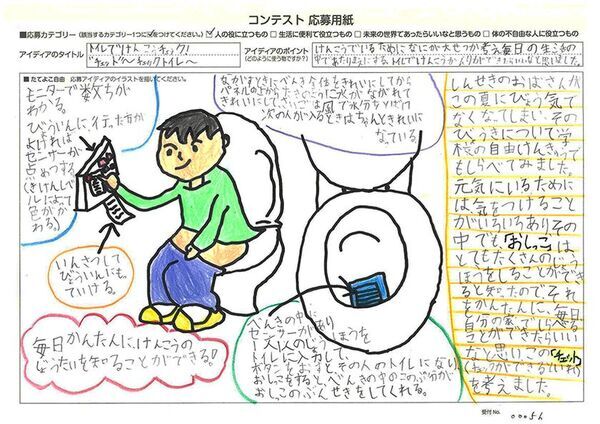 コンテスト 応募用紙
■応募カテゴリー（該当するカテゴリー1つに✓をつけてください。） ☑人の役に立つもの □生活に役立つもの □未来の世界であったらいいなと思うもの □体の不自由な人に役立つもの
アイディアのタイトル
トイレでけんこうチェック!
アイディアのポイント
(どのような物ですか)
けんこうでいるためになにか大せつか考え毎日の生活の
■たてよこ自由 応募アイディアのイラストを描いてください。
モニターで数ちが
わかる。
びょういんに行った方が
よければ
センサーが
点めつする
(きけんレベ
ルによって
色がか
わる)
いんさつして
びょういんにも
ていける。
毎日かんたんに、けんこうの
じょうたいを知ることができる!
ながすときにべんきや台をきれいにしてから
パネルの上から
きれいにして、さいごは風で水分をとばす
次の人が入るときはちゃんときれいに
なっている。
べんきの中に
センサーがあり
一人一人のじょうほうを
トイレに入力して、
ボタンをおすとその人のトイレになり
おしっこをすると、べんきの中のこの部分が
おしっこのぶんせきをしてくれる。
しんせきのおばさんが
この真にびょう気で
なくなってしまい、その
びょうきについて学
校の自由けんきゅうで
もしらべてみました。
元気にいるために
は気をつけること
がいろいろあり その
中でも、「おしっこ」は
とてもたくさんのじょう
ほうをしることができ
ると知ったので それ
をかんたんに、毎日
自分の家でしらべる
ことができたらいい
なと思い、この「チェット」
(チェックができるトイレ)
を考えました。
受付No. 00056